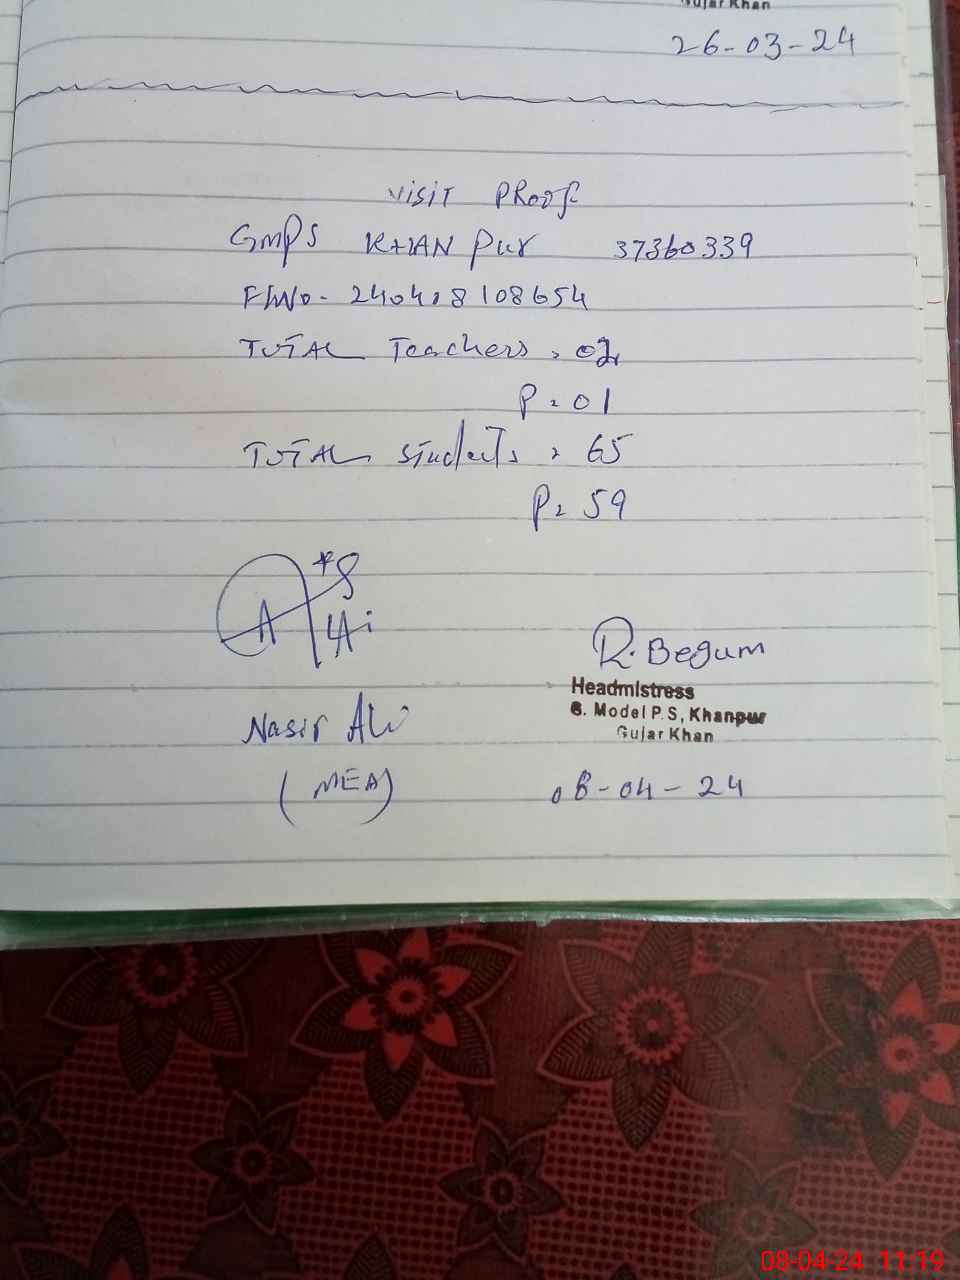 Gujar Khan
26-03-24
Visit Proof
GMPS KHAN Pur 37360339
240408108654
TOTAL Teachers = 02
P = 01
TOTAL Students = 65
P = 59
R. Begum
Headmistress
G. Model P.S, Khanpur
Gujar Khan
Nasir Ali
(MEA)
08-04-24
08-04-24 11:19